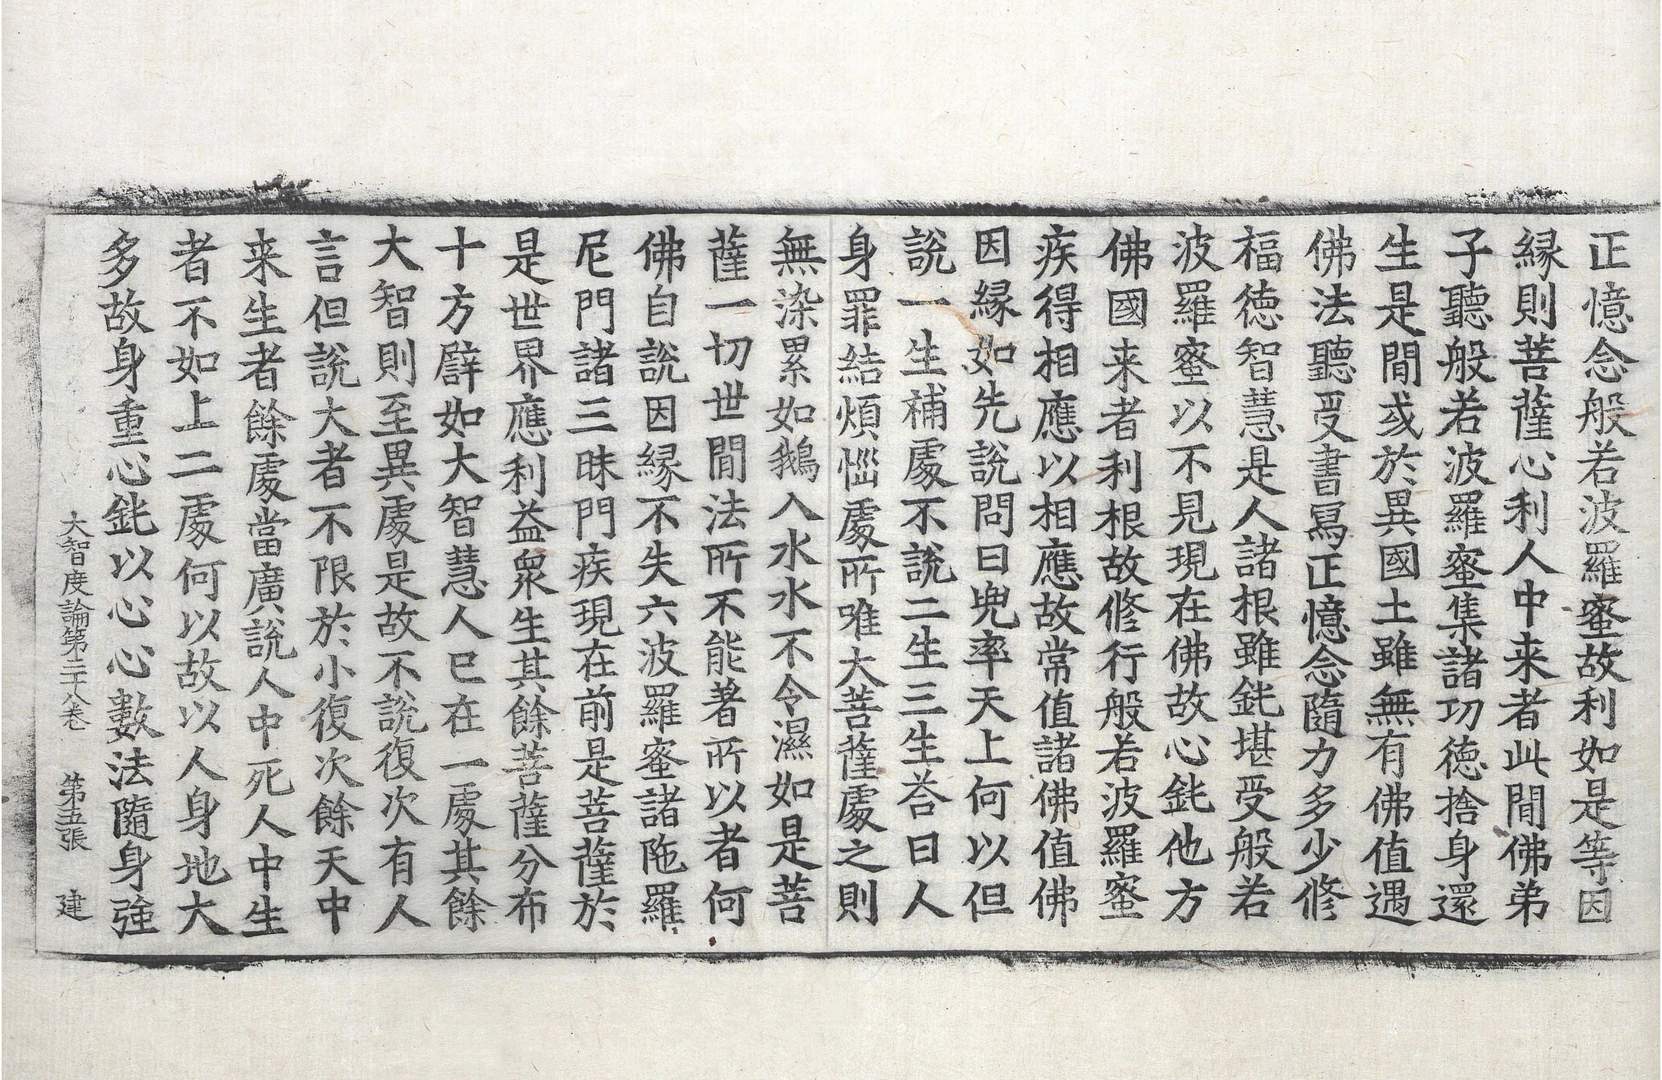 正憶念般若波羅蜜故利如是等因
縁則菩薩心利人中来者此間佛弟
子聽般若波羅蜜集諸功德捨身還
生是間或於異國土雖無有佛值遇
佛法聽受書寫正憶念隨力多少修
福德智慧是人諸根雖鈍堪受般若
波羅蜜以不見現在佛故心鈍他方
佛國来者利根故修行般若波羅蜜
疾得相應以相應故常值諸佛值佛
因緣如先說問曰兜率天上何以但
說一生補處不說二生三生荅曰人
身罪結煩惱處所唯大菩薩處之則
無染累如鵝入水水不令濕如是菩
薩一切世間法所不能著所以者何
佛自說因緣不失六波羅蜜諸陁羅
尼門諸三昧門疾現在前是菩薩於
是世界應利益衆生其餘菩薩分布
十方辟如大智慧人已在一處其餘
大智則至異處是故不說復次有人
言但說大者不限於小復次餘天中
来生者餘處當廣說人中死人中生
者不如上二處何以故以人身地大
多故身重心鈍以心心數法隨身強
大智度論第三十八卷 第五張 建